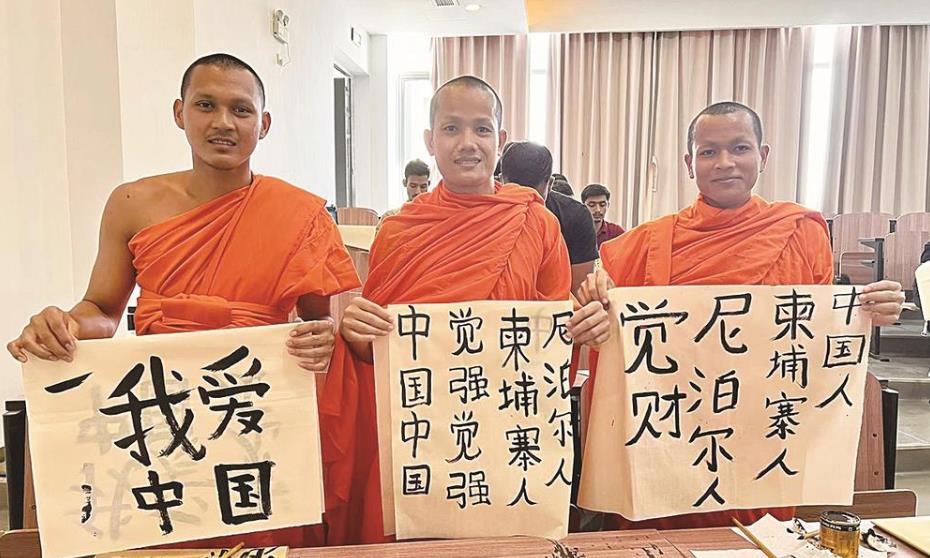 一我爱
中国
尼泊尔人
柬埔寨人
觉强觉强
中国中国
中国人
柬埔寨人
尼泊尔人
觉财